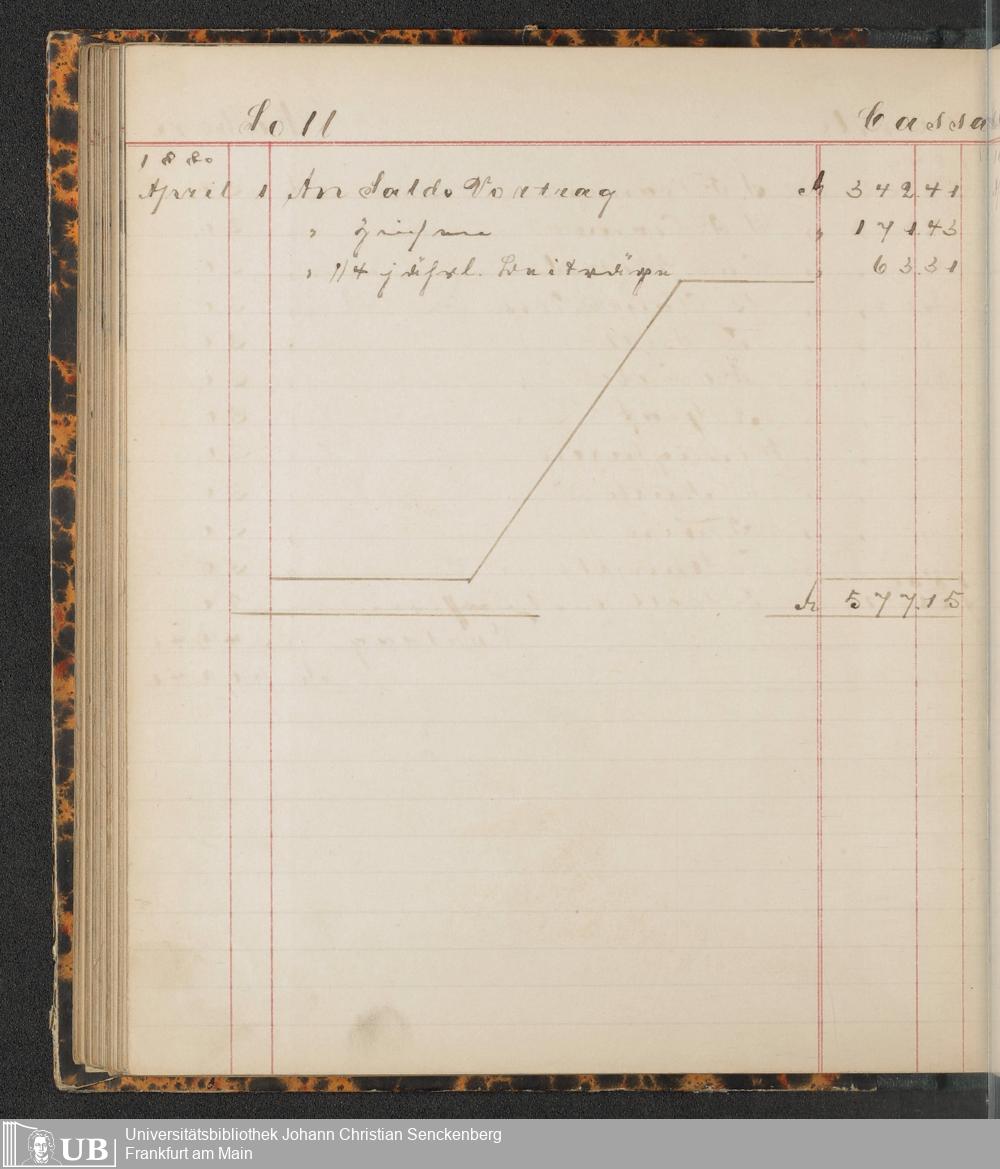 Soll Cassa
1880
April 1 An Saldo Vortrag M 342.41
" Zinsen " 171.43
" 1/4 jährl. Beiträge " 63.31
M 577.15
UB Universitätsbibliothek Johann Christian Senckenberg
Frankfurt am Main